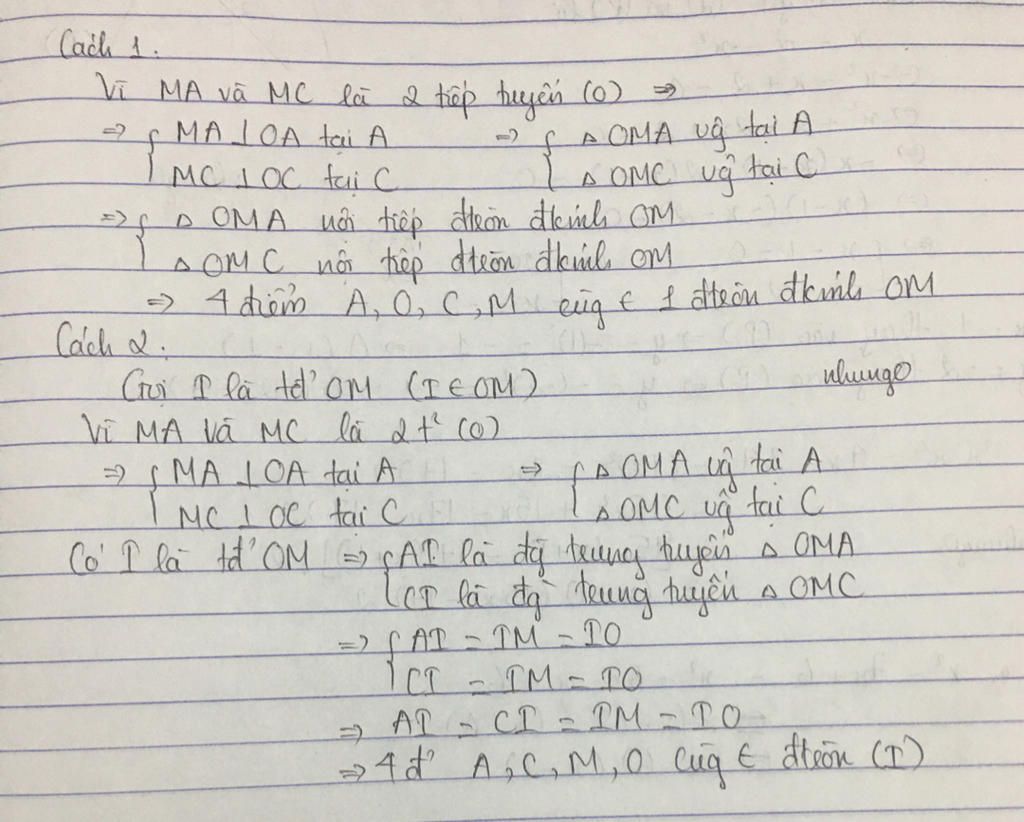 Cách 1.
Vì MA và MC là 2 tiếp tuyến (O) ⇒
⇒ { MA ⊥ OA tại A ⇒ { △ OMA vg̃ tại A
MC ⊥ OC tại C △ OMC vg̃ tại C
⇒ { △ OMA nội tiếp đtròn đkính OM
△ OMC nội tiếp đtròn đkính OM
⇒ 4 điểm A, O, C, M cũg ∈ 1 đtròn đkính OM
Cách 2.
Gọi I là tđ' OM (I ∈ OM)
nhungo
Vì MA và MC là 2 t² (O)
⇒ { MA ⊥ OA tại A ⇒ { △ OMA vg̃ tại A
MC ⊥ OC tại C △ OMC vg̃ tại C
Có I là tđ' OM ⇒ { AI là đg̀ trung tuyến △ OMA
CI là đg̀ trung tuyến △ OMC
⇒ { AI = IM = IO
CI = IM = IO
⇒ AI = CI = IM = IO
⇒ 4 đ' A, C, M, O cũg ∈ đtròn (I)